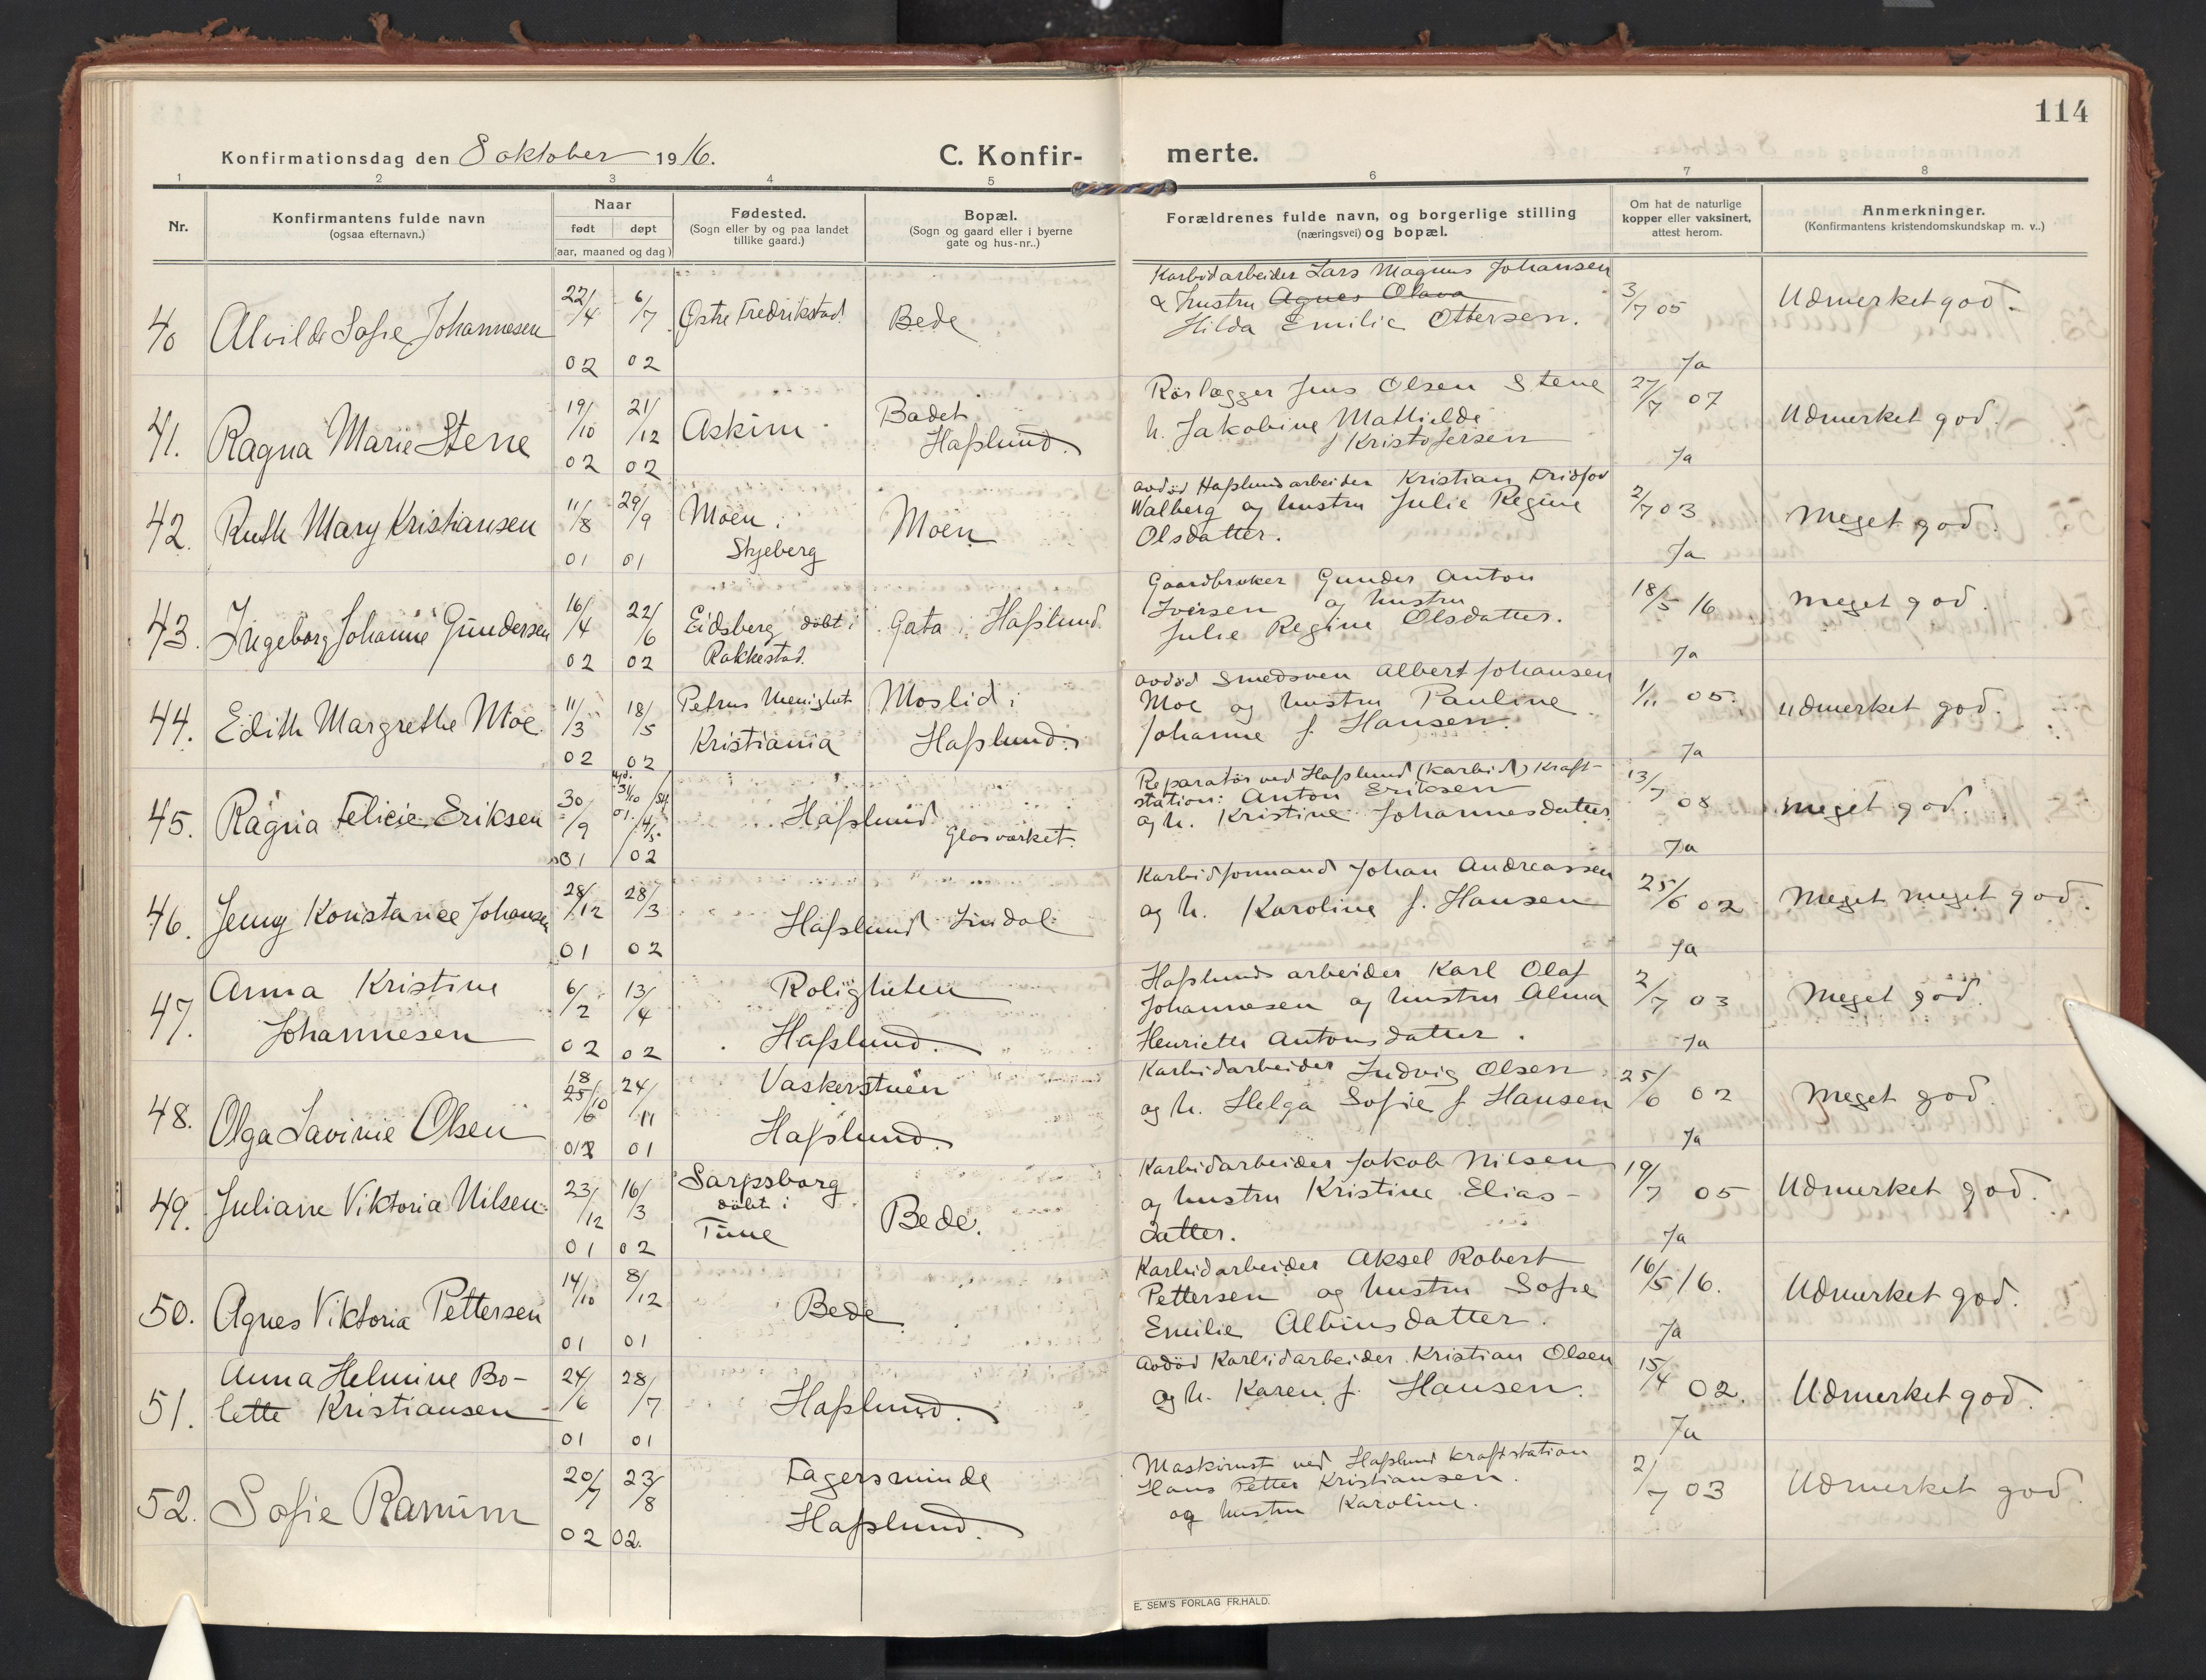 114
Konfirmationsdag den 8 oktober 1916.
C. Konfir- merte.
1 2 3 4 5 6 7 8
Nr.
Konfirmantens fulde navn
(ogsaa efternavn.)
Naar
født døpt
(aar, maaned og dag)
Fødested.
(Sogn eller by og paa landet
tillike gaard.)
Bopæl.
(Sogn og gaard eller i byerne
gate og hus-nr..)
Forældrenes fulde navn, og borgerlige stilling
(næringsvei) og bopæl.
Om hat de naturlige
kopper eller vaksinert,
attest herom.
Anmerkninger.
(Konfirmantens kristendomskundskap m. v..)
40 Alvilde Sofie Johannesen
22/4 02
6/7 02
Østre Fredrikstad.
Bede
Karbidarbeider Lars Magnus Johansen
& hustru Agnes Olava
Hilda Emilie Ottersen.
3/7 05
Ja
Udmerket god.
41. Ragna Marie Stene
19/10 02
21/12 02
Askim
Badet
Haſslund.
Rørlægger Jens Olsen Stene
h. Jakobine Mathilde
f Kristofersen
27/7 07
Ja
Udmerket god.
42. Ruth Mary Kristiansen
11/8 01
29/9 01
Moen i
Skjeberg
Moen
avdød Haſslundsarbeider Kristian Fridjov
Walberg og hustru Julie Regine
Olsdatter.
2/7 03
Ja
Meget god.
43. Ingeborg Johanne Gundersen
16/4 02
22/6 02
Eidsberg døbt i
Rakkestad.
Gata i Haſslund.
Gaardbruker Gunder Anton
Iversen og hustru
Julie Regine Olsdatter.
18/5 16
Ja
Meget god.
44. Edith Margrethe Moe
11/3 02
18/5 02
Petrus Menighet
Kristiania
Moslid i
Haſslund.
avdød Smedsven Albert Johansen
Moe og hustru Pauline
Johanne f. Hansen.
1/11 05.
Ja
Udmerket god.
45. Ragna Felicie Eriksen
30/9 01
31/10 01. St. 4/5 02
Haſslund
Glasværket.
Reparatør ved Haſslund (Karbid) Kraft-
station: Anton Eriksen
og h. Kristine Johannesdatter
13/7 08
Ja
Meget god.
46. Jenny Konstance Johansen
28/12 01
28/3 02
Haſslund Lindal
Karbidformand Johan Andreassen
og h. Karoline f. Hansen
25/6 02
Ja
Meget meget god.
47. Anna Kristine
Johannesen
6/2 02
13/4 02
Roligheten
Haſslund.
Haſslunds arbeider Karl Olaf
Johannesen og hustru Alma
Henriette Antonsdatter.
2/7 03
Ja
Meget god.
48. Olga Lavinie Olsen
18/10 25/6 01
24/11 01
Vaskerstuen
Haſslund.
Karbidarbeider Ludvig Olsen
og h. Helga Sofie f Hansen
25/6 02
Ja
Meget god.
49. Juliane Viktoria Nilsen
23/12 01
16/3 02
Sarpsborg
døbt i
Tune
Bede.
Karbidarbeider Jakob Nilsen
og hustru Kristine Elias-
datter.
19/7 05
Ja
Udmerket god.
50. Agnes Viktoria Pettersen
14/10 01
8/12 01
Bede
Karbidarbeider Aksel Robert
Pettersen og hustru Sofie
Emilie Albinsdatter.
16/5 16.
Ja
Udmerket god.
51. Anna Helmine Bo-
lette Kristiansen
24/6 01
28/7 01
Haſslund.
Avdød Karbidarbeider Kristian Olsen
og h. Karen f. Hansen.
15/4 02.
Ja
Udmerket god.
52. Sofie Ramum
20/7 02
23/8 02.
Fagersminde
Haſslund.
Maskinist ved Haſslund kraftstation
Hans Petter Kristiansen.
og hustru Karoline.
2/7 03
Udmerket god.
E. SEM'S FORLAG FR.HALD.